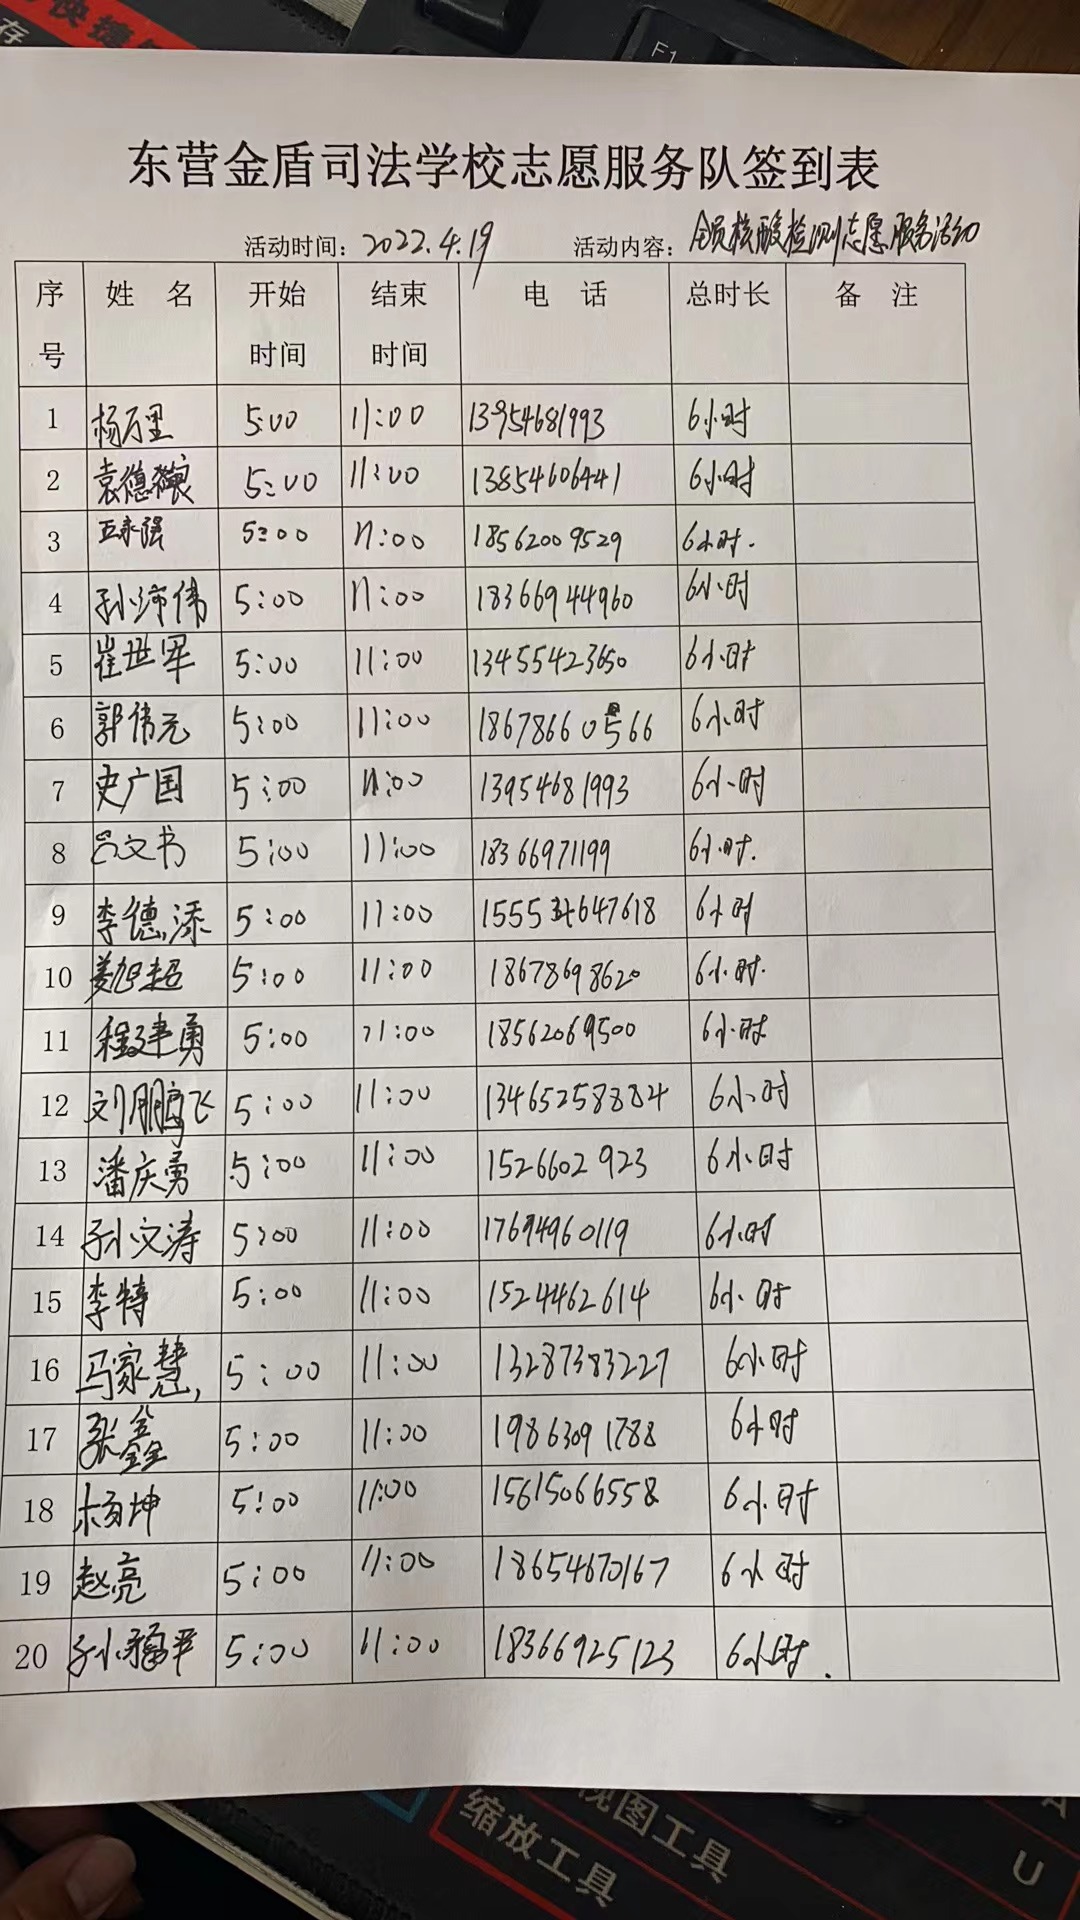 快捷
存
F1
东营金盾司法学校志愿服务队签到表
活动时间：2022.4.19 活动内容：全员核酸检测志愿服务活动
序号 姓名 开始时间 结束时间 电话 总时长 备注
1 杨万里 5:00 11:00 13954681993 6小时
2 袁德 5:00 11:00 13854606441 6小时
3 王永强 5:00 11:00 18562009529 6小时.
4 孙沛伟 5:00 11:00 18366944960 6小时
5 崔世军 5:00 11:00 13455423650 6小时
6 郭伟元 5:00 11:00 18678660566 6小时
7 史广国 5:00 11:00 13954681993 6小时
8 吕文书 5:00 11:00 18366971199 6小时.
9 李德添 5:00 11:00 6小时
10 姜旭超 5:00 11:00 18678698620 6小时.
11 程建勇 5:00 11:00 18562069500 6小时
12 刘鹏飞 5:00 11:00 13465258884 6小时
13 潘庆勇 5:00 11:00 1526602923 6小时
14 孙文涛 5:00 11:00 17694960119 6小时
15 李特 5:00 11:00 1524462614 6小时
16 马家慧, 5:00 11:00 13287383227 6小时
17 张鑫 5:00 11:00 19863091788 6小时
18 杨坤 5:00 11:00 15615066558 6小时
19 赵亮 5:00 11:00 18654670167 6小时
20 孙福平 5:00 11:00 18366925123 6小时.
视图工具
缩放工具
A
U